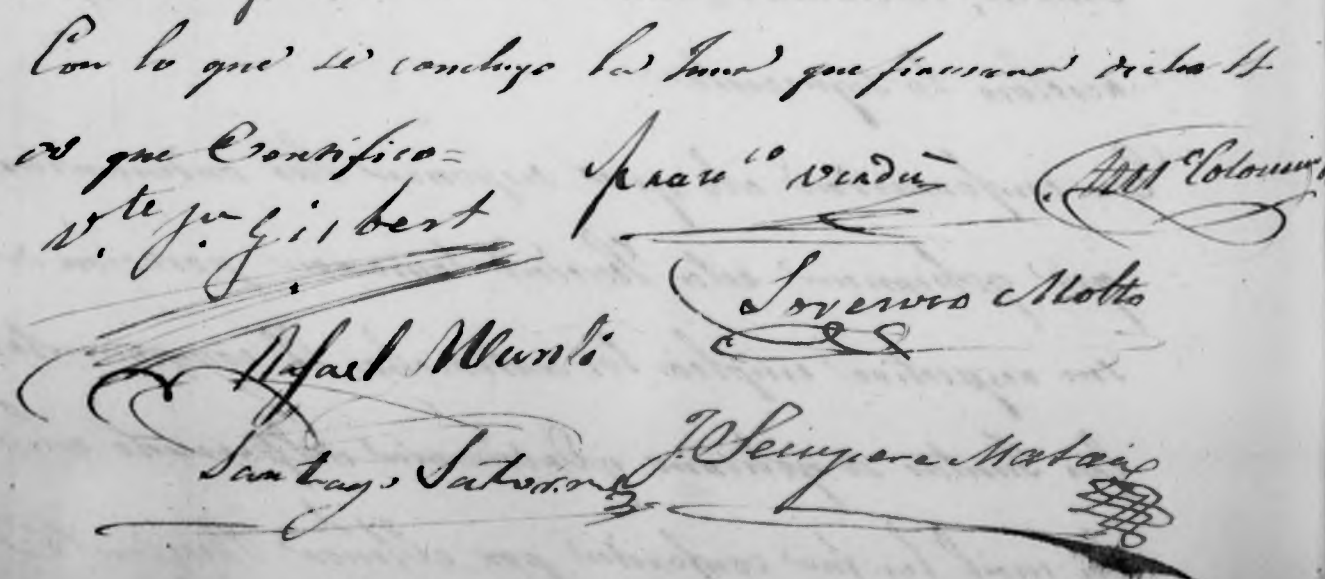 Con lo que se concluyo la Junta que firmaron dichos SS
de que Certifico=
V.te Jn. Gisbert
Franco. Verdú
Anto. Colomina
Lorenzo Molto
Rafael
Santiago Satorre
J. Sempere Mataix